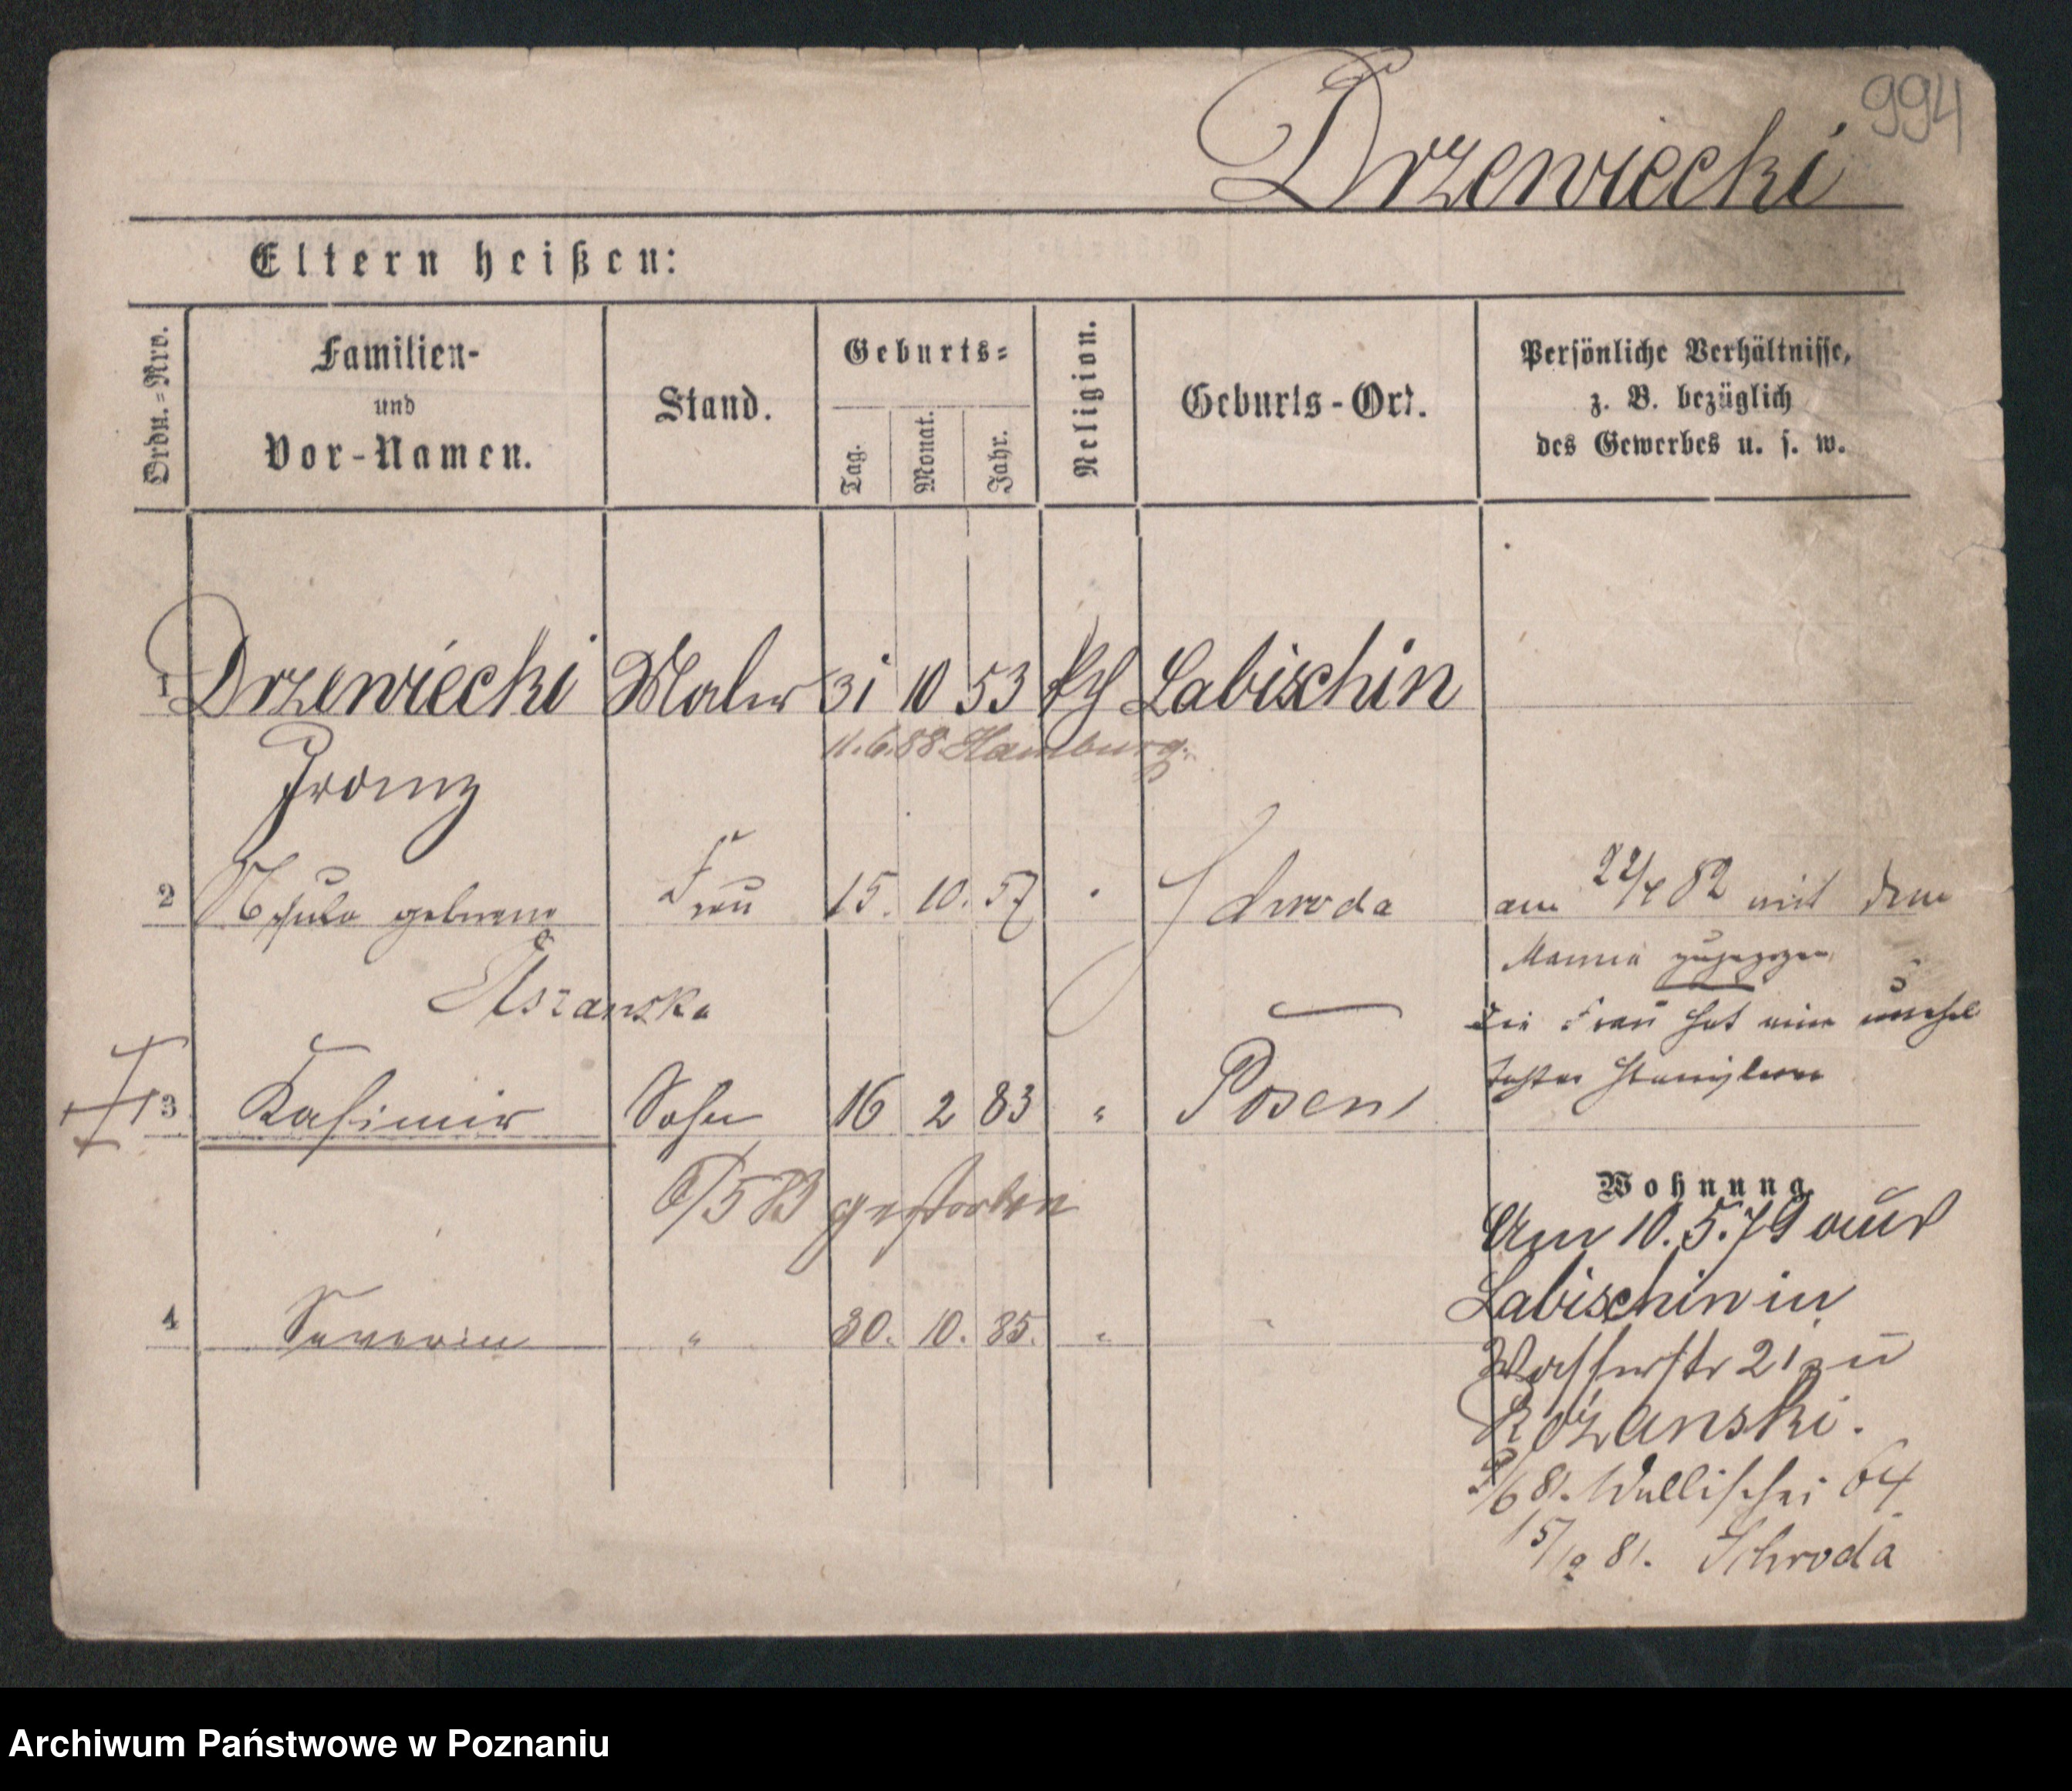 994
Drzewiecki
Eltern heißen:
Ordn.=Nro.
Familien-
und
Vor-Namen.
Stand.
Geburts=
Tag.
Monat.
Jahr.
Religion.
Geburts-Ort.
Persönliche Verhältnisse,
z. B. bezüglich
des Gewerbes u. s. w.
1 Drzewiecki Maler 31 10 53 Labischin
11.6.88. Hamburg.
Franz
2 geborene Frau 15. 10. 57 Schroda am 22/4 82 mit dem
Manne zugezogen
Die Frau hat eine unehel
Tochter
3 Kasimir Sohn 16 2 83 " Posen
6/5 83 gestorben
4 Severin " 30. 10. 85. "
Wohnung.
Am 10.5.79 aus
Labischin in
Wasserstr 21 zu
Rożanski.
/6 81. Wallischei 64
15/12 81. Schroda
Archiwum Państwowe w Poznaniu